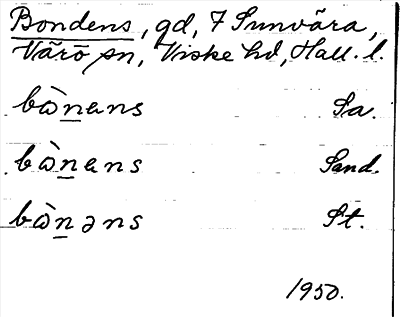 Bondens, gd, 7 Sunvära,
Värö sn, Viske hd, Hall. l.
bὼnɐns Sa.
bὼnɐns Sand.
bὼnəns St.
1950.